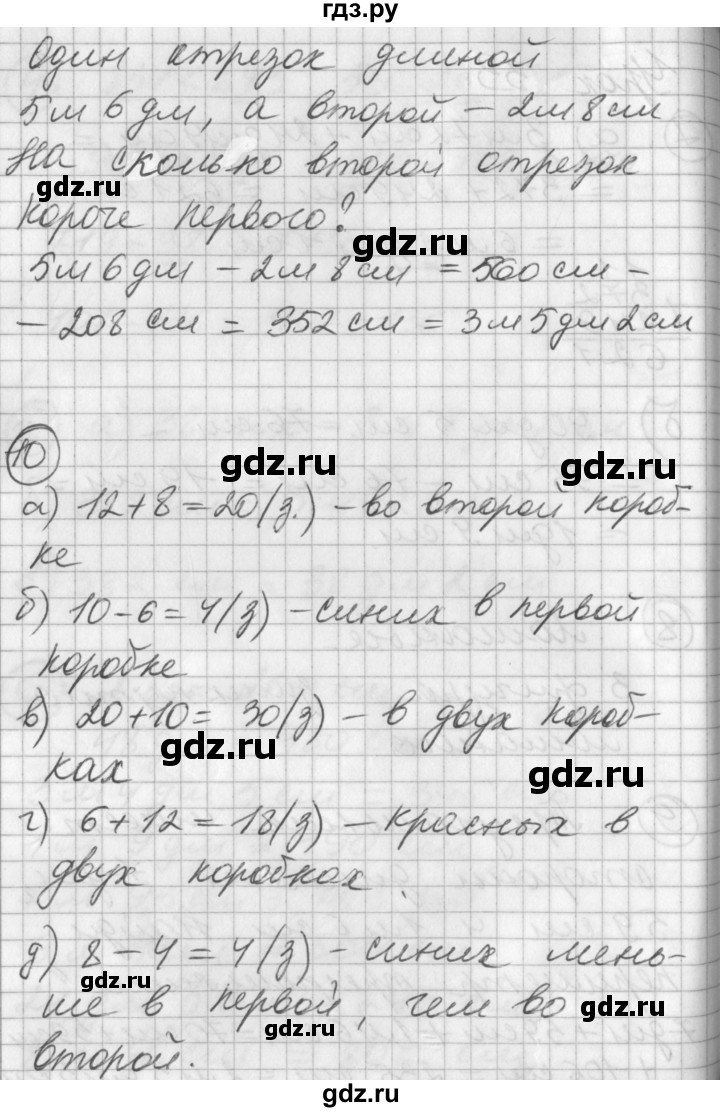 гдз.ру
Один отрезок длиной
5м 6дм, а второй – 2м 8см
На сколько второй отрезок
gdz.ru
короче первого?
gdz.ru
5м 6дм – 2м 8см = 560см –
– 208см = 352см = 3м 5дм 2см
10
gdz.ru
gdz.ru
а) 12+8=20(з.) – во второй короб-
ке
б) 10–6=4(з) – синих в первой
коробке
в) 20+10= 30(з) – в двух короб-
gdz.ru
ках
gdz.ru
г) 6+12=18(з) – красных в
двух коробках.
д) 8–4=4(з) – синих мень-
gdz.ru
ше в первой, чем во
gdz.ru
gdz.ru
второй.
gdz.ru